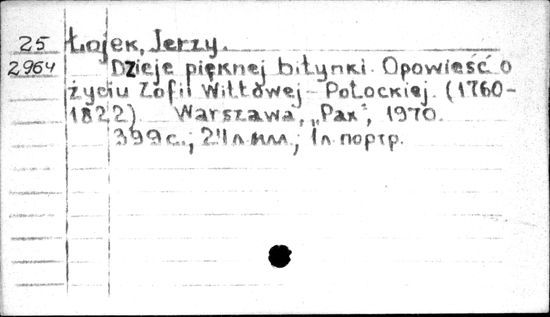 25 Łojek, Jerzy.
2964 Dzieje pięknej bitynki. Opowieść o
życiu Zofii Wittowej-Potockiej. (1760-
1822). Warszawa, „Pax", 1970.
399 с.; 24 л. илл.; 1 л. портр.